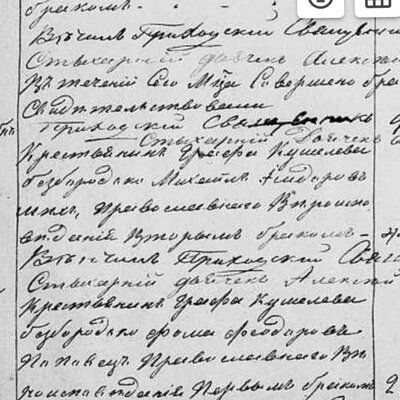 бракомъ
Вѣнчилъ Приходскій Священни
Стихарній дьячекъ Алекс
Въ теченіи Сего Мца Совершено бра
Свидѣтельствовали
Приходскій Свя
Стихарній Дьячекъ
Крестьянинъ Графа Кушелева
безбородько Михаилъ Федоровъ
Православнаго Вѣроиспо
вѣданія Вторымъ бракомъ
Вѣнчилъ Приходскій Свя
Стихарній дьячекъ Алексѣй
Крестьянинъ Графа Кушелева
безбородько фома феодоровъ
Православнаго Вѣ
роисповѣданія Первымъ бракомъ 2